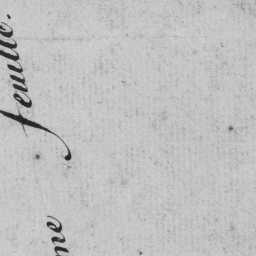 feuille.
me